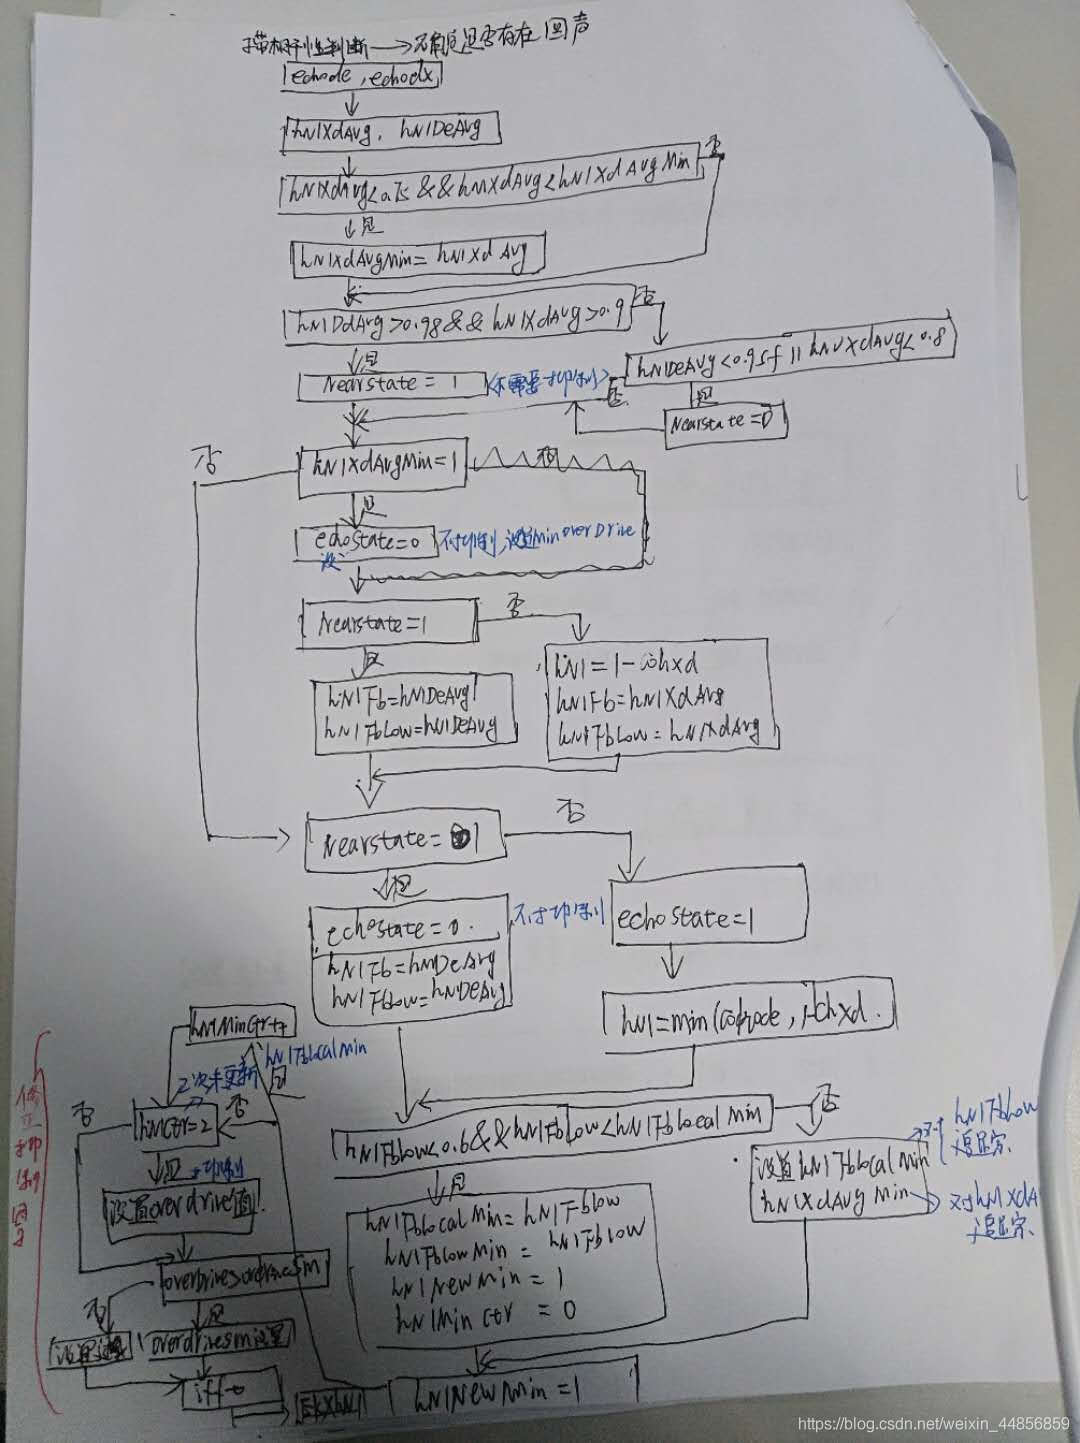 子带相干性判断→不能定是否存在回声
echode, echodx
hNlXdAvg, hNlDeAvg
hNlXdAvg<0.75 && hNlXdAvg<hNlXdAvgMin
否
是
hNlXdAvgMin= hNlXdAvg
hNlDdAvg>0.98 && hNlXdAvg>0.9
否
是
hNlDeAvg<0.95f || hNlXdAvg<0.8
Nearstate = 1
<不需要抑制>
否
是
Nearstate=0
否
hNlXdAvgMin=1
否
是
echoState=0
不抑制,设置minoverDrive
Nearstate=1
否
是
hNl=1-cohxd
hNlFb=hNlXdAvg
hNlFbLow=hNlXdAvg
hNlFb=hNlDeAvg
hNlFbLow=hNlDeAvg
Nearstate= 1
否
是
echoState=0.
不抑制
echoState=1
hNlFb=hNlDeAvg
hNlFbLow=hNlDeAvg
hNl=min(cohde, 1-chxd.
hNlMinCtr++
hNlFbLocalMin
2次未更新
是
否
否
hNlCtr=2
hNlFbLow<0.6&&hNlFbLow<hNlFbLocalMin
否
是
抑制
设置overdrive值!
是
设置hNlFbLocalMin
hNlXdAvgMin
对
hNlFbLow
追踪
对hNlXdA
追踪
hNlFbLocalMin= hNlFbLow
hNlFbLowMin = hNlFbLow
hNlNewMin = 1
hNlMinCtr = 0
修正抑制因子
否
是
overdrivesm设置
hNlNewMin=1
https://blog.csdn.net/weixin_44856859